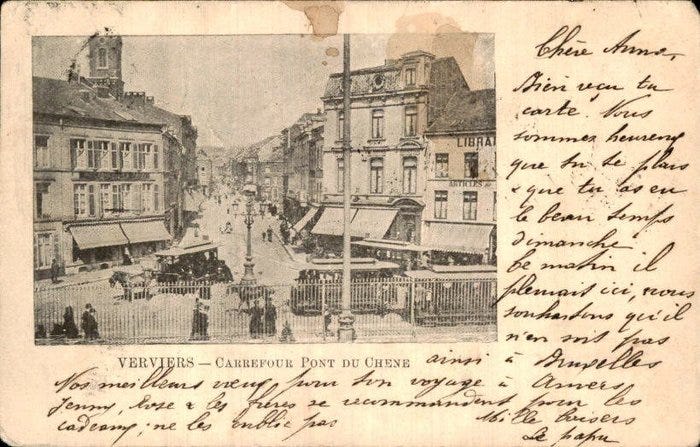 Chère Anna,
Bien reçu ta
carte. Nous
sommes heureux
que tu te plais
& que tu as eu
le beau temps
dimanche
Ce matin il
pleuvait ici, nous
souhaitons qu'il
n'en soit pas
ainsi à Bruxelles
LIBRAI
ARTICLES DE
VERVIERS — CARREFOUR PONT DU CHENE
Nos meilleurs vœux pour ton voyage à Anvers
Jenny, Rose & les frères se recommandent pour les
cadeaux; ne les oublie pas
Mille baisers
Le papa